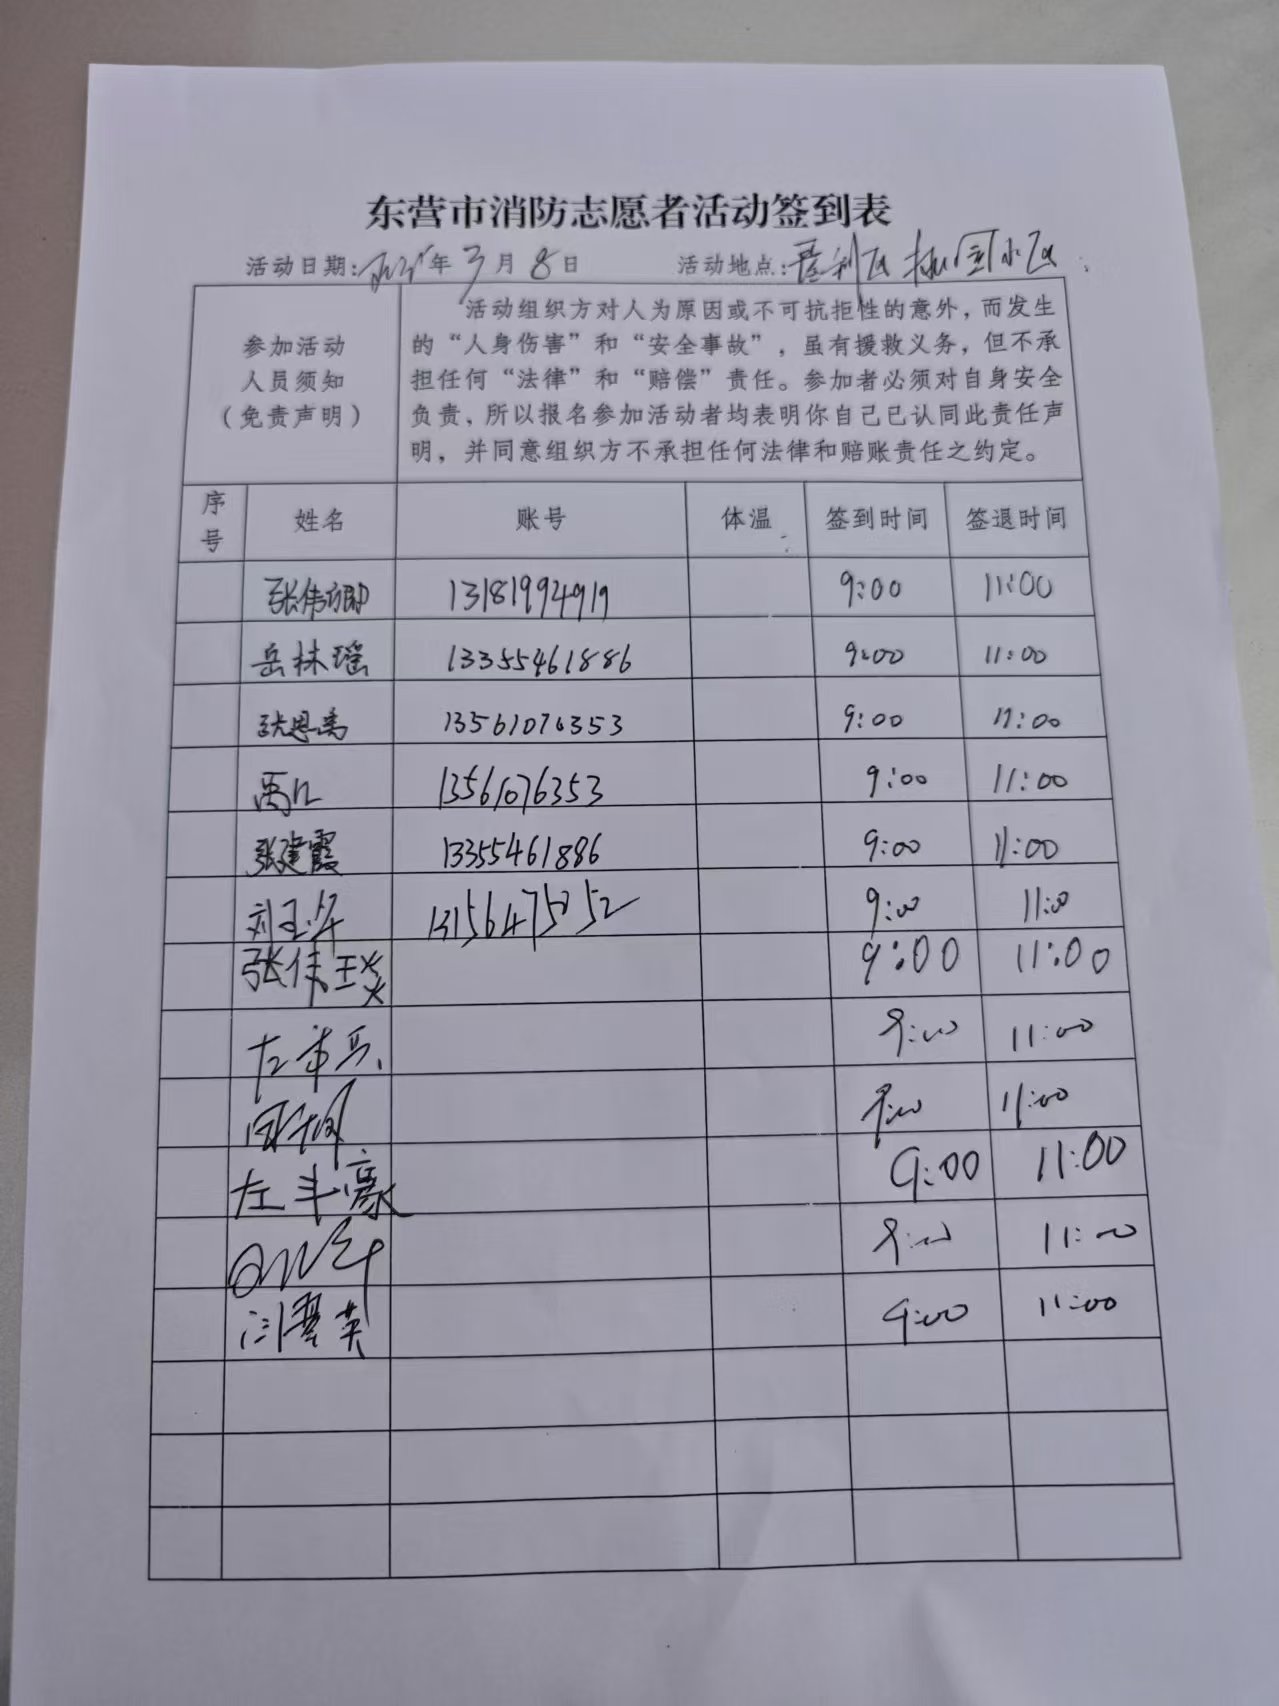 东营市消防志愿者活动签到表
活动日期: 年3月8日 活动地点:垦利区 小区
参加活动
人员须知
（免责声明）
活动组织方对人为原因或不可抗拒性的意外，而发生
的“人身伤害”和“安全事故”，虽有援救义务，但不承
担任何“法律”和“赔偿”责任。参加者必须对自身安全
负责，所以报名参加活动者均表明你自己已认同此责任声
明，并同意组织方不承担任何法律和赔账责任之约定。
序号 姓名 账号 体温 签到时间 签退时间
张伟卿 13181994919 9:00 11:00
岳林瑶 13355461886 9:00 11:00
张恩禹 13561076353 9:00 11:00
禹 13561076353 9:00 11:00
张建霞 13355461886 9:00 11:00
刘玉华 13156475052 9:00 11:00
张 9:00 11:00
左 9:00 11:00
9:00 11:00
左丰豪 9:00 11:00
9:00 11:00
闫翠英 9:00 11:00